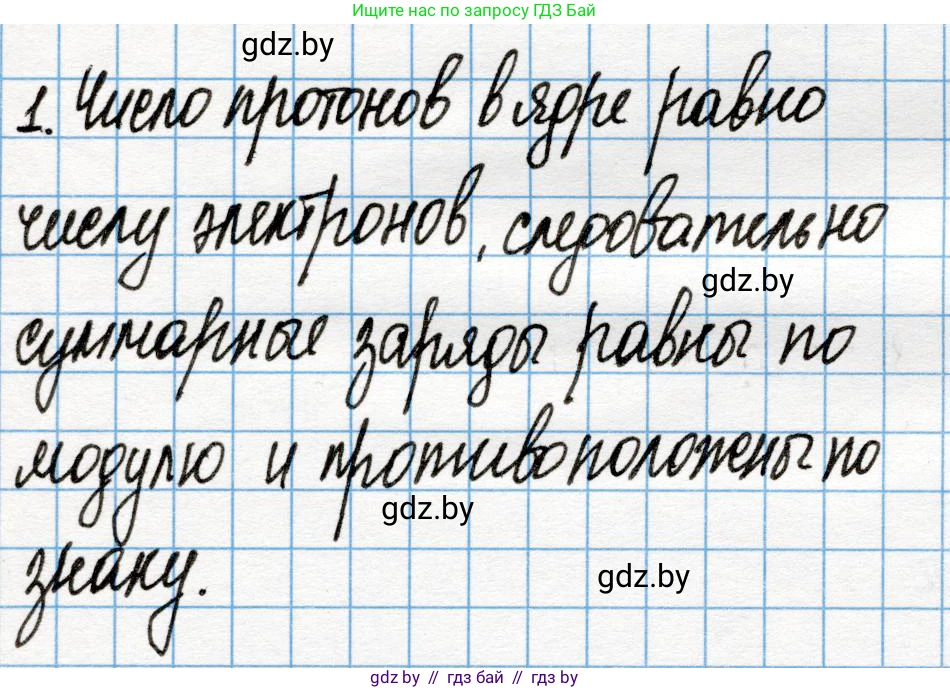 Ищите нас по запросу ГДЗ Бай
gdz.by
1. Число протонов в ядре равно
числу электронов, следовательно
gdz.by
суммарные заряды равны по
модулю и противоположены по
gdz.by
знаку.
gdz.by
gdz.by // гдз бай // gdz.by